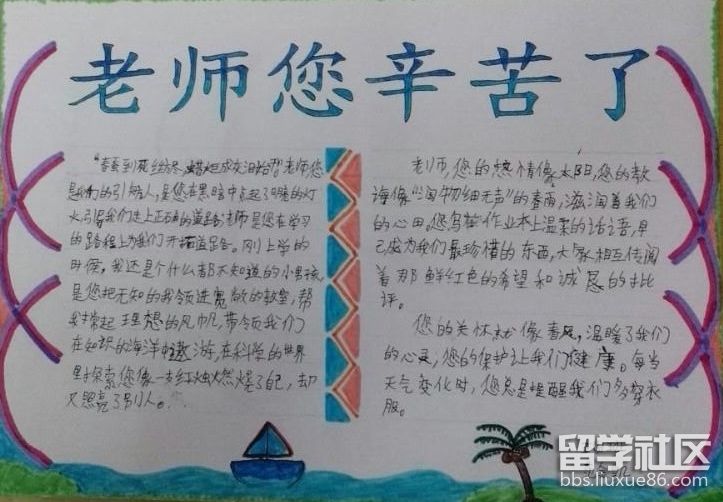 老师您辛苦了
"春蚕到死丝方尽,蜡炬成灰泪始干"老师,您
是我们的引路人,是您在黑暗中点起了明亮的灯
火,引导我们走上正确的道路;老师是您在学习
的路程上为我们开拓道路。刚上学的
时候,我还是个什么都不知道的小男孩
是您把无知的我领进宽敞的教室,帮
我撑起理想的风帆,带领我们
在知识的海洋中遨游,在科学的世界
里探索您像一支红烛燃烧了自己,却
又照亮了别人。
老师,您的热情像太阳,您的教
诲像"润物细无声"的春雨,滋润着我们
的心田。您写在作业本上温柔的话语,早
已成为我们最珍惜的东西,大家相互传阅
着那鲜红色的希望和诚恳的批
评。
您的关怀就像春风,温暖了我们
的心灵,您的保护让我们健康。每当
天气变化时,您总是提醒我们多穿衣
服。
留学社区
bbs.liuxue86.com